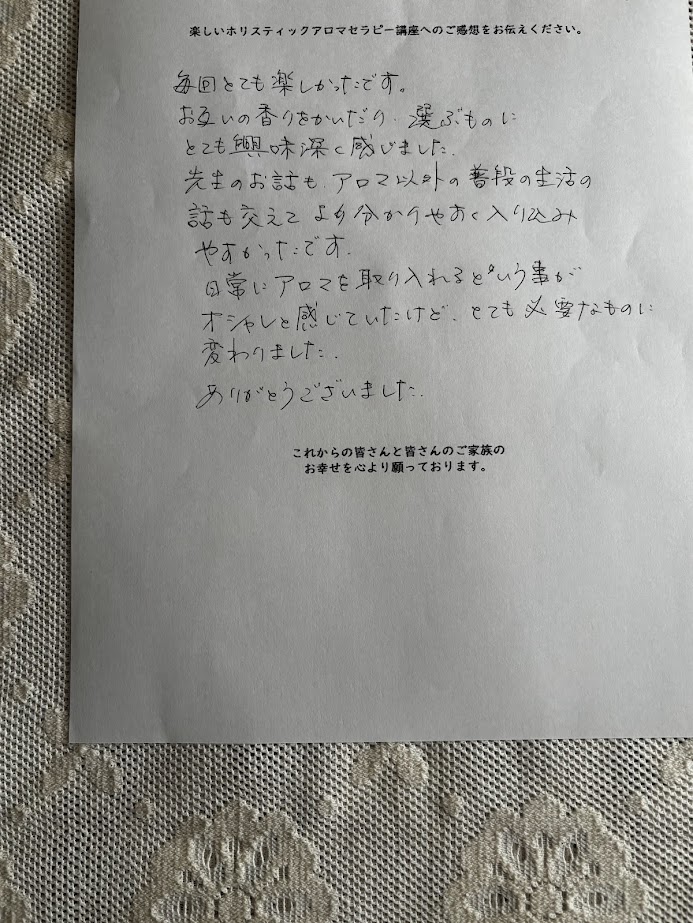 楽しいホリスティックアロマセラピー講座へのご感想をお伝えください。
毎回とても楽しかったです。
お互いの香りをかいだり、選ぶものに
とても興味深く感じました。
先生のお話も、アロマ以外の普段の生活の
話も交えて より分かりやすく入り込み
やすかったです。
日常にアロマを取り入れるという事が
オシャレと感じていたけど、とても必要なものに
変わりました。
ありがとうございました。
これからの皆さんと皆さんのご家族の
お幸せを心より願っております。